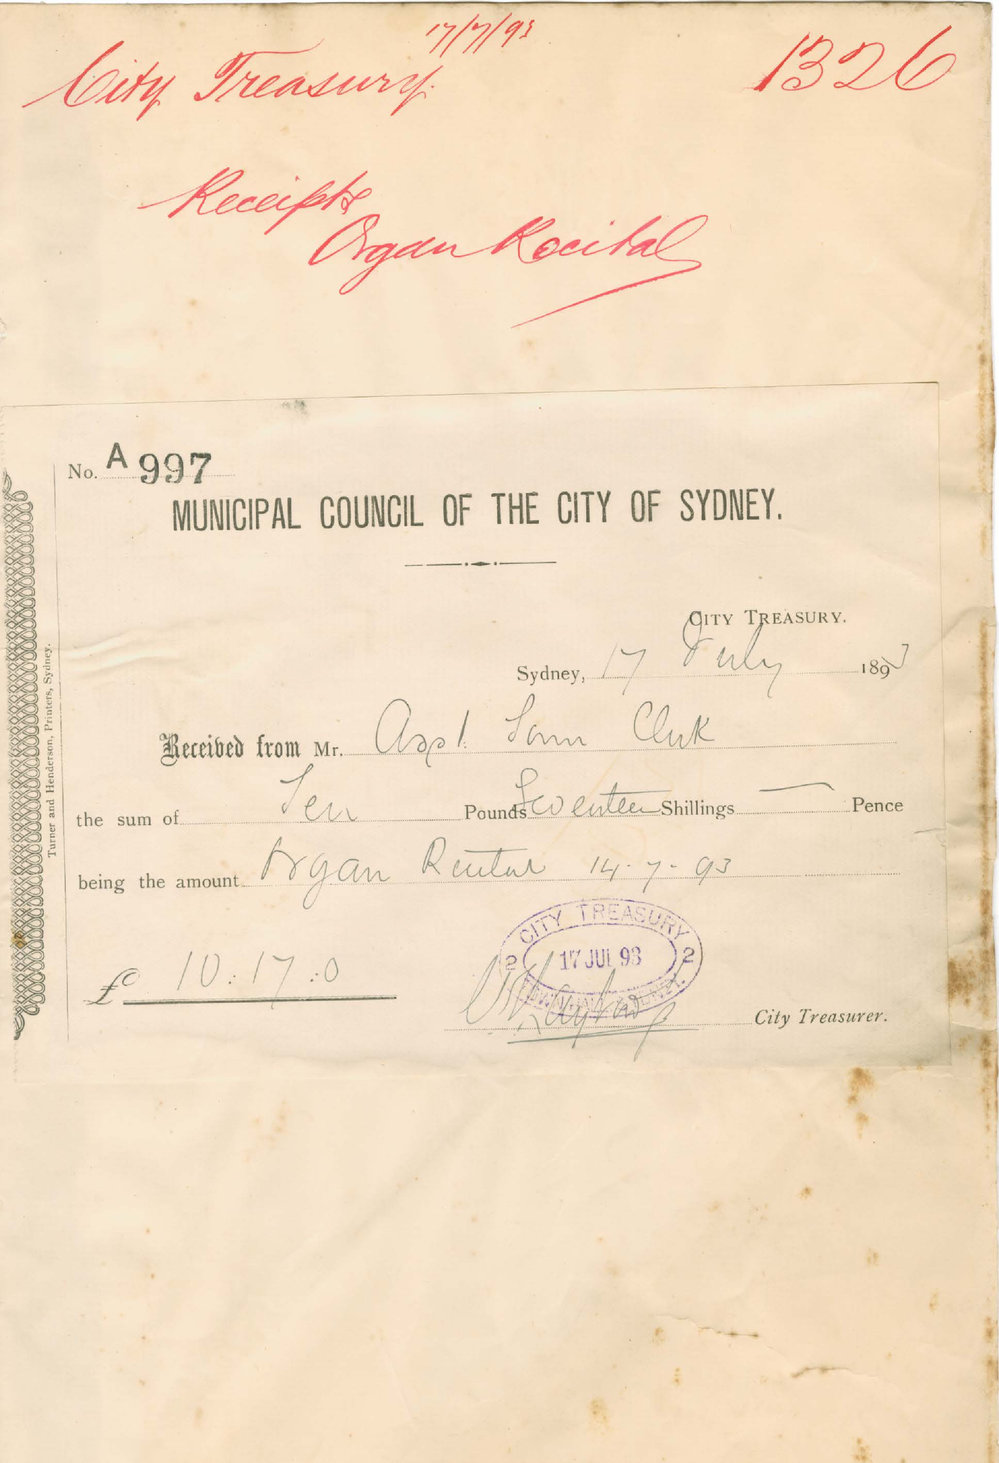 17/7/93
City Treasury. 1326
Receipts
Organ Recital
No. A 997
MUNICIPAL COUNCIL OF THE CITY OF SYDNEY.
CITY TREASURY.
Sydney, 17 July 1893
Received from Mr. Asst. Town Clerk
the sum of Ten Pounds Seventeen Shillings — Pence
being the amount Organ Recital 14.7.93
CITY TREASURY
2 17 JUL 93 2
TOWN HALL SYDNEY.
£ 10:17:0
City Treasurer.
Turner and Henderson, Printers, Sydney.